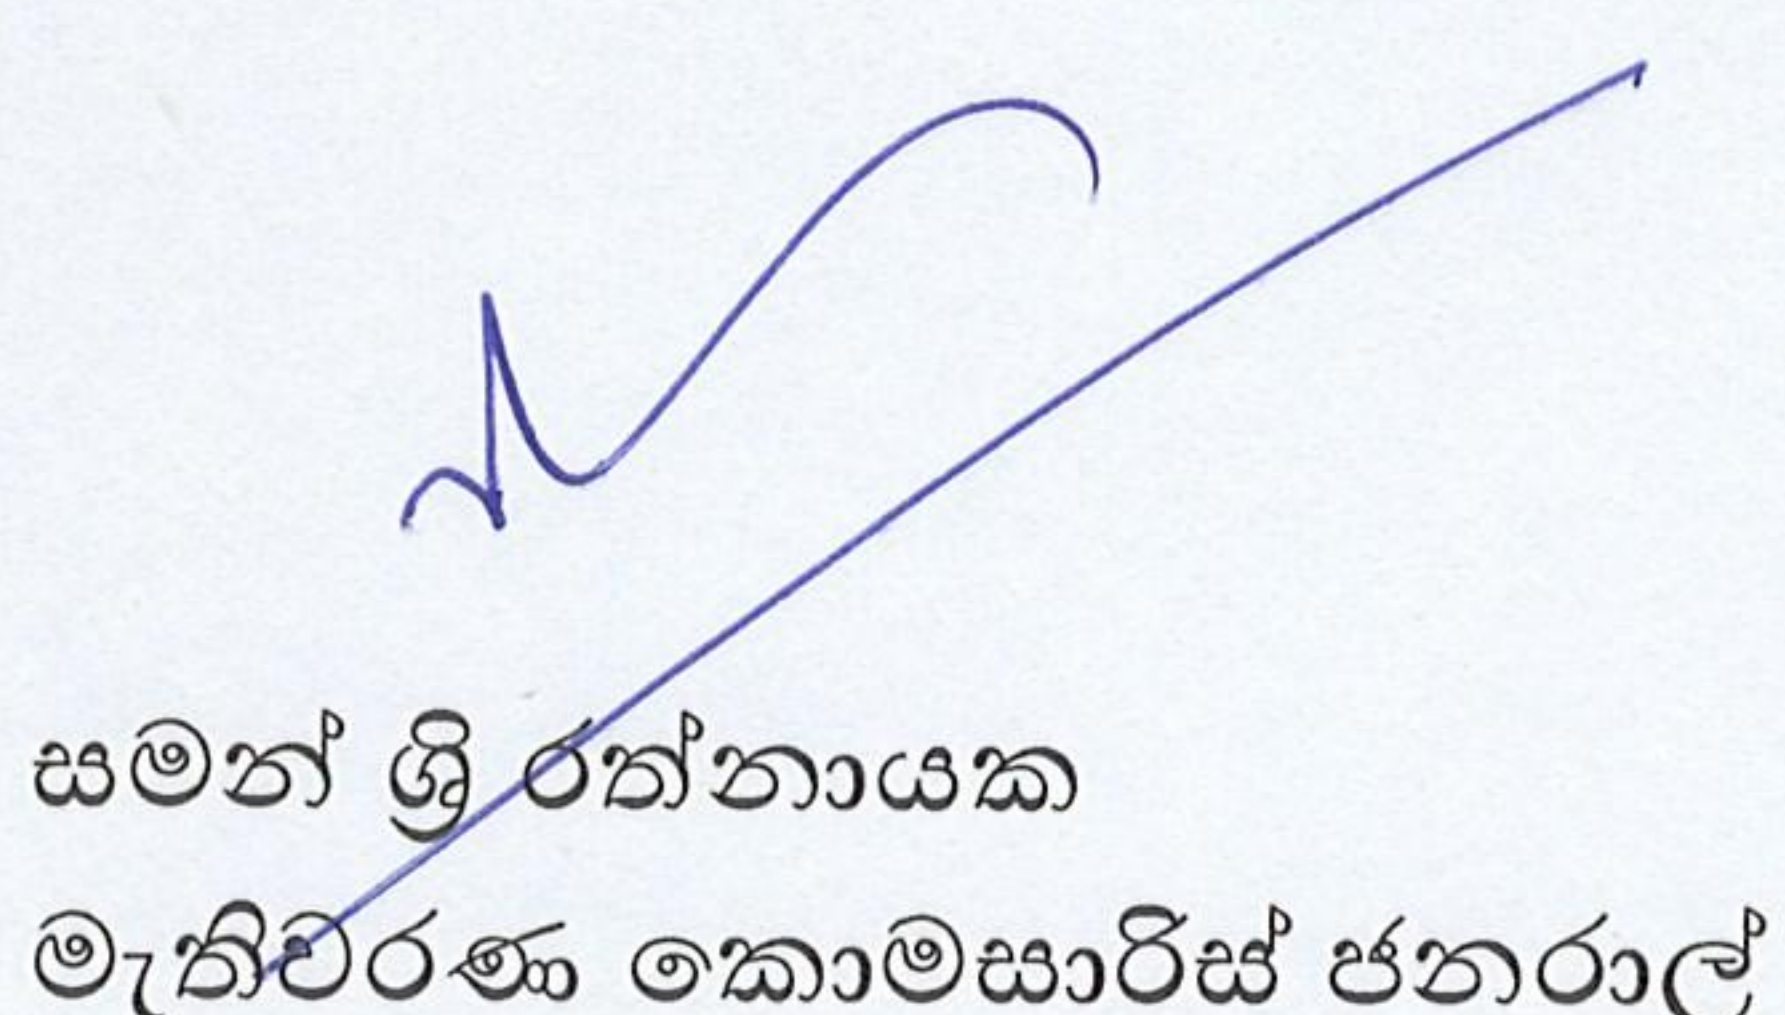 සමන් ශ්‍රි රත්නායක
මැතිවරණ කොමසාරිස් ජනරාල්